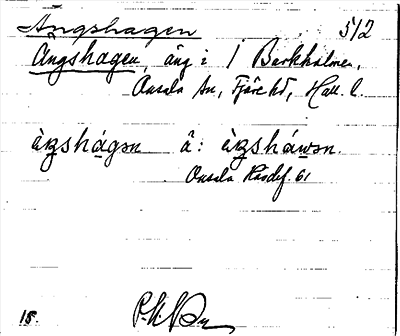 Ängshagen 512
Ängshagen, äng i 1 Backholmen,
Onsala sn, Fjäre hd, Hall. l.
àŋshágən å: àŋsháwən.
Onsala Kåsdef. 61
18.